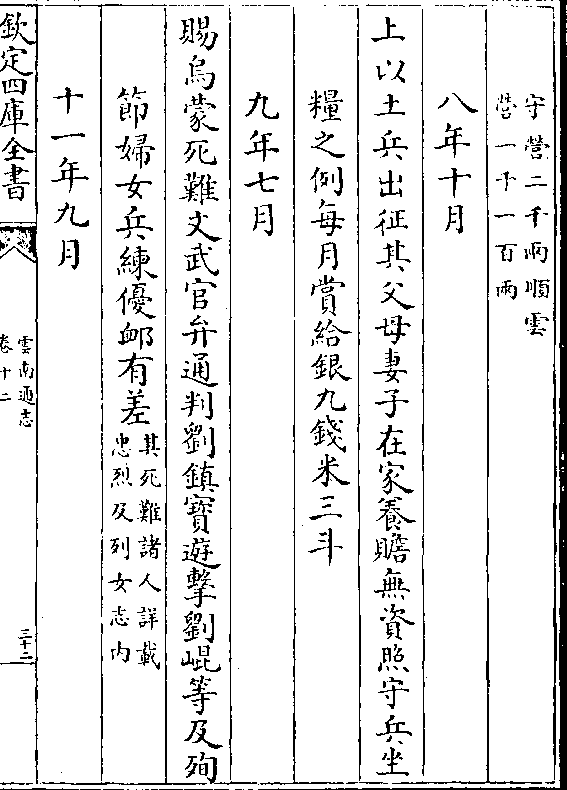 守營二千兩順雲
營一千一百兩
八年十月
上以土兵出征其父母妻子在家養贍無資照守兵坐
糧之例每月賞給銀九錢米三斗
九年七月
賜烏蒙死難文武官弁通判劉鎮寶遊擊劉崐等及殉
節婦女兵練優䘏有差其死難諸人詳載
忠烈及列女志内
十一年九月
欽定四庫全書
雲南通志
卷十二
三十二